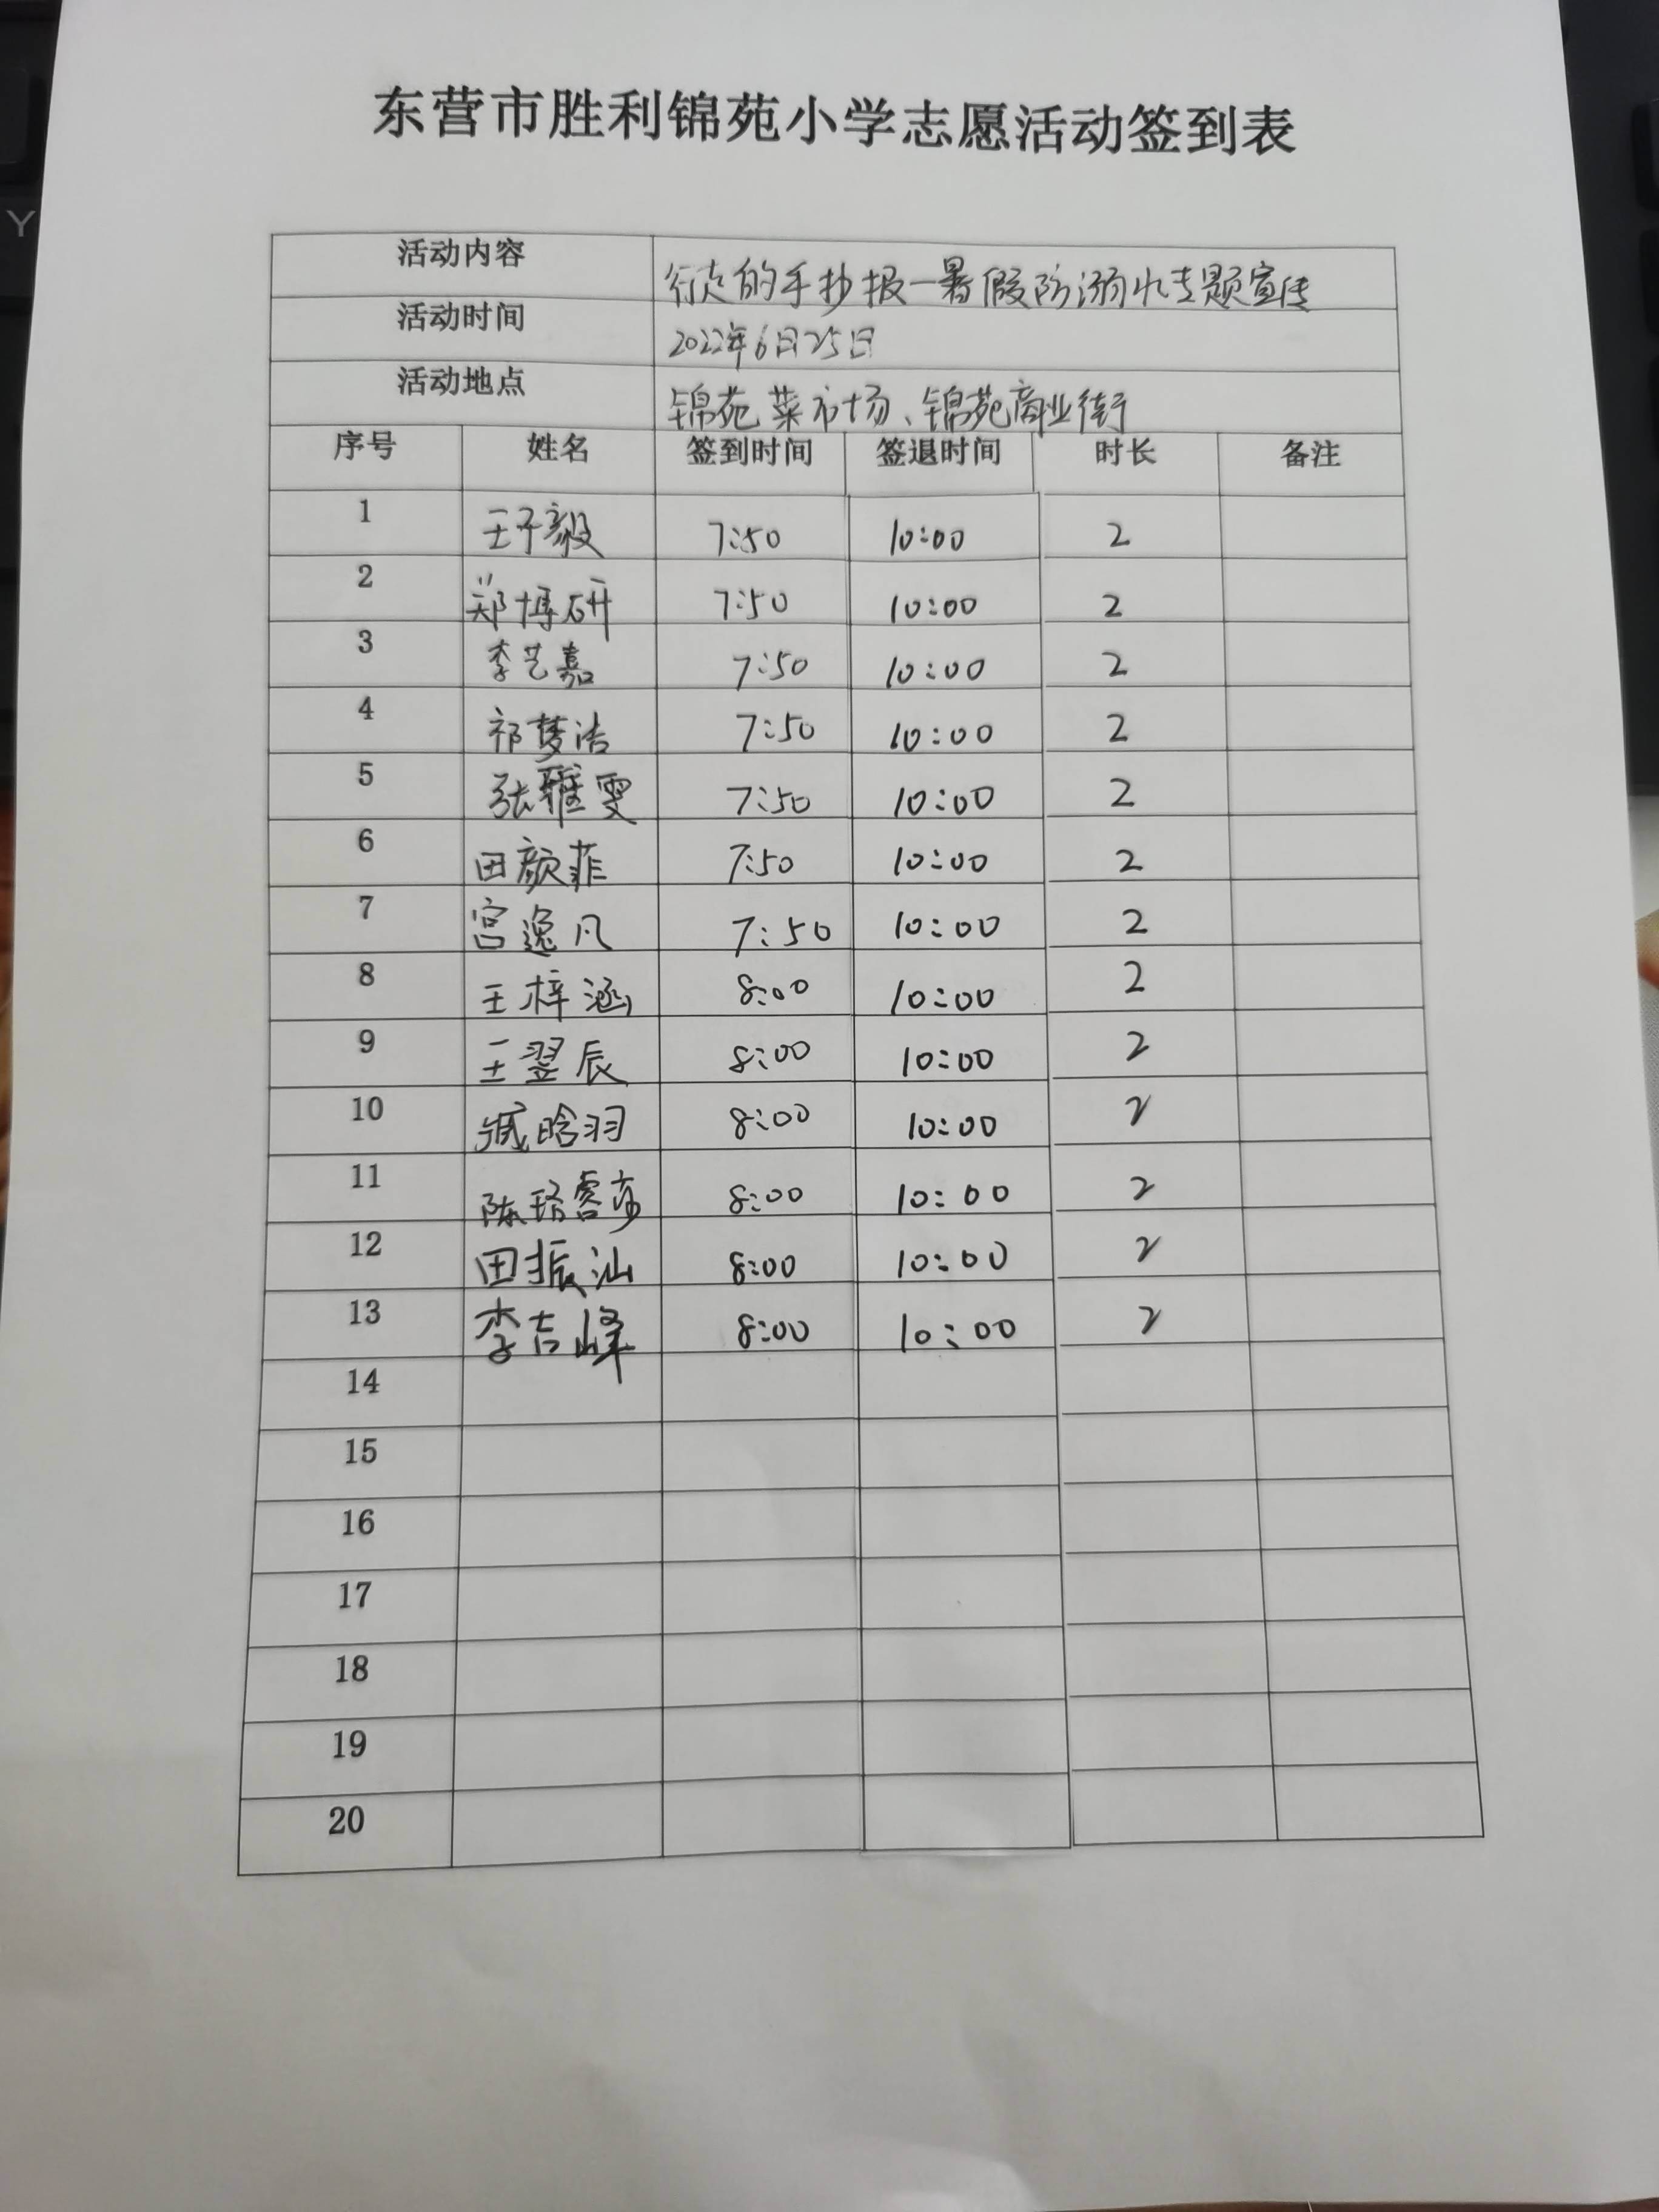 东营市胜利锦苑小学志愿活动签到表
活动内容 行走的手抄报—暑假防溺水专题宣传
活动时间 2022年6月25日
活动地点 锦苑菜市场、锦苑商业街
序号 姓名 签到时间 签退时间 时长 备注
1 王子毅 7:50 10:00 2
2 郑博研 7:50 10:00 2
3 李艺嘉 7:50 10:00 2
4 祁梦洁 7:50 10:00 2
5 张雅雯 7:50 10:00 2
6 田颜菲 7:50 10:00 2
7 宫逸凡 7:50 10:00 2
8 王梓涵 8:00 10:00 2
9 王翌辰 8:00 10:00 2
10 臧晗羽 8:00 10:00 2
11 8:00 10:00 2
12 田振汕 8:00 10:00 2
13 李吉峰 8:00 10:00 2
14
15
16
17
18
19
20
Y